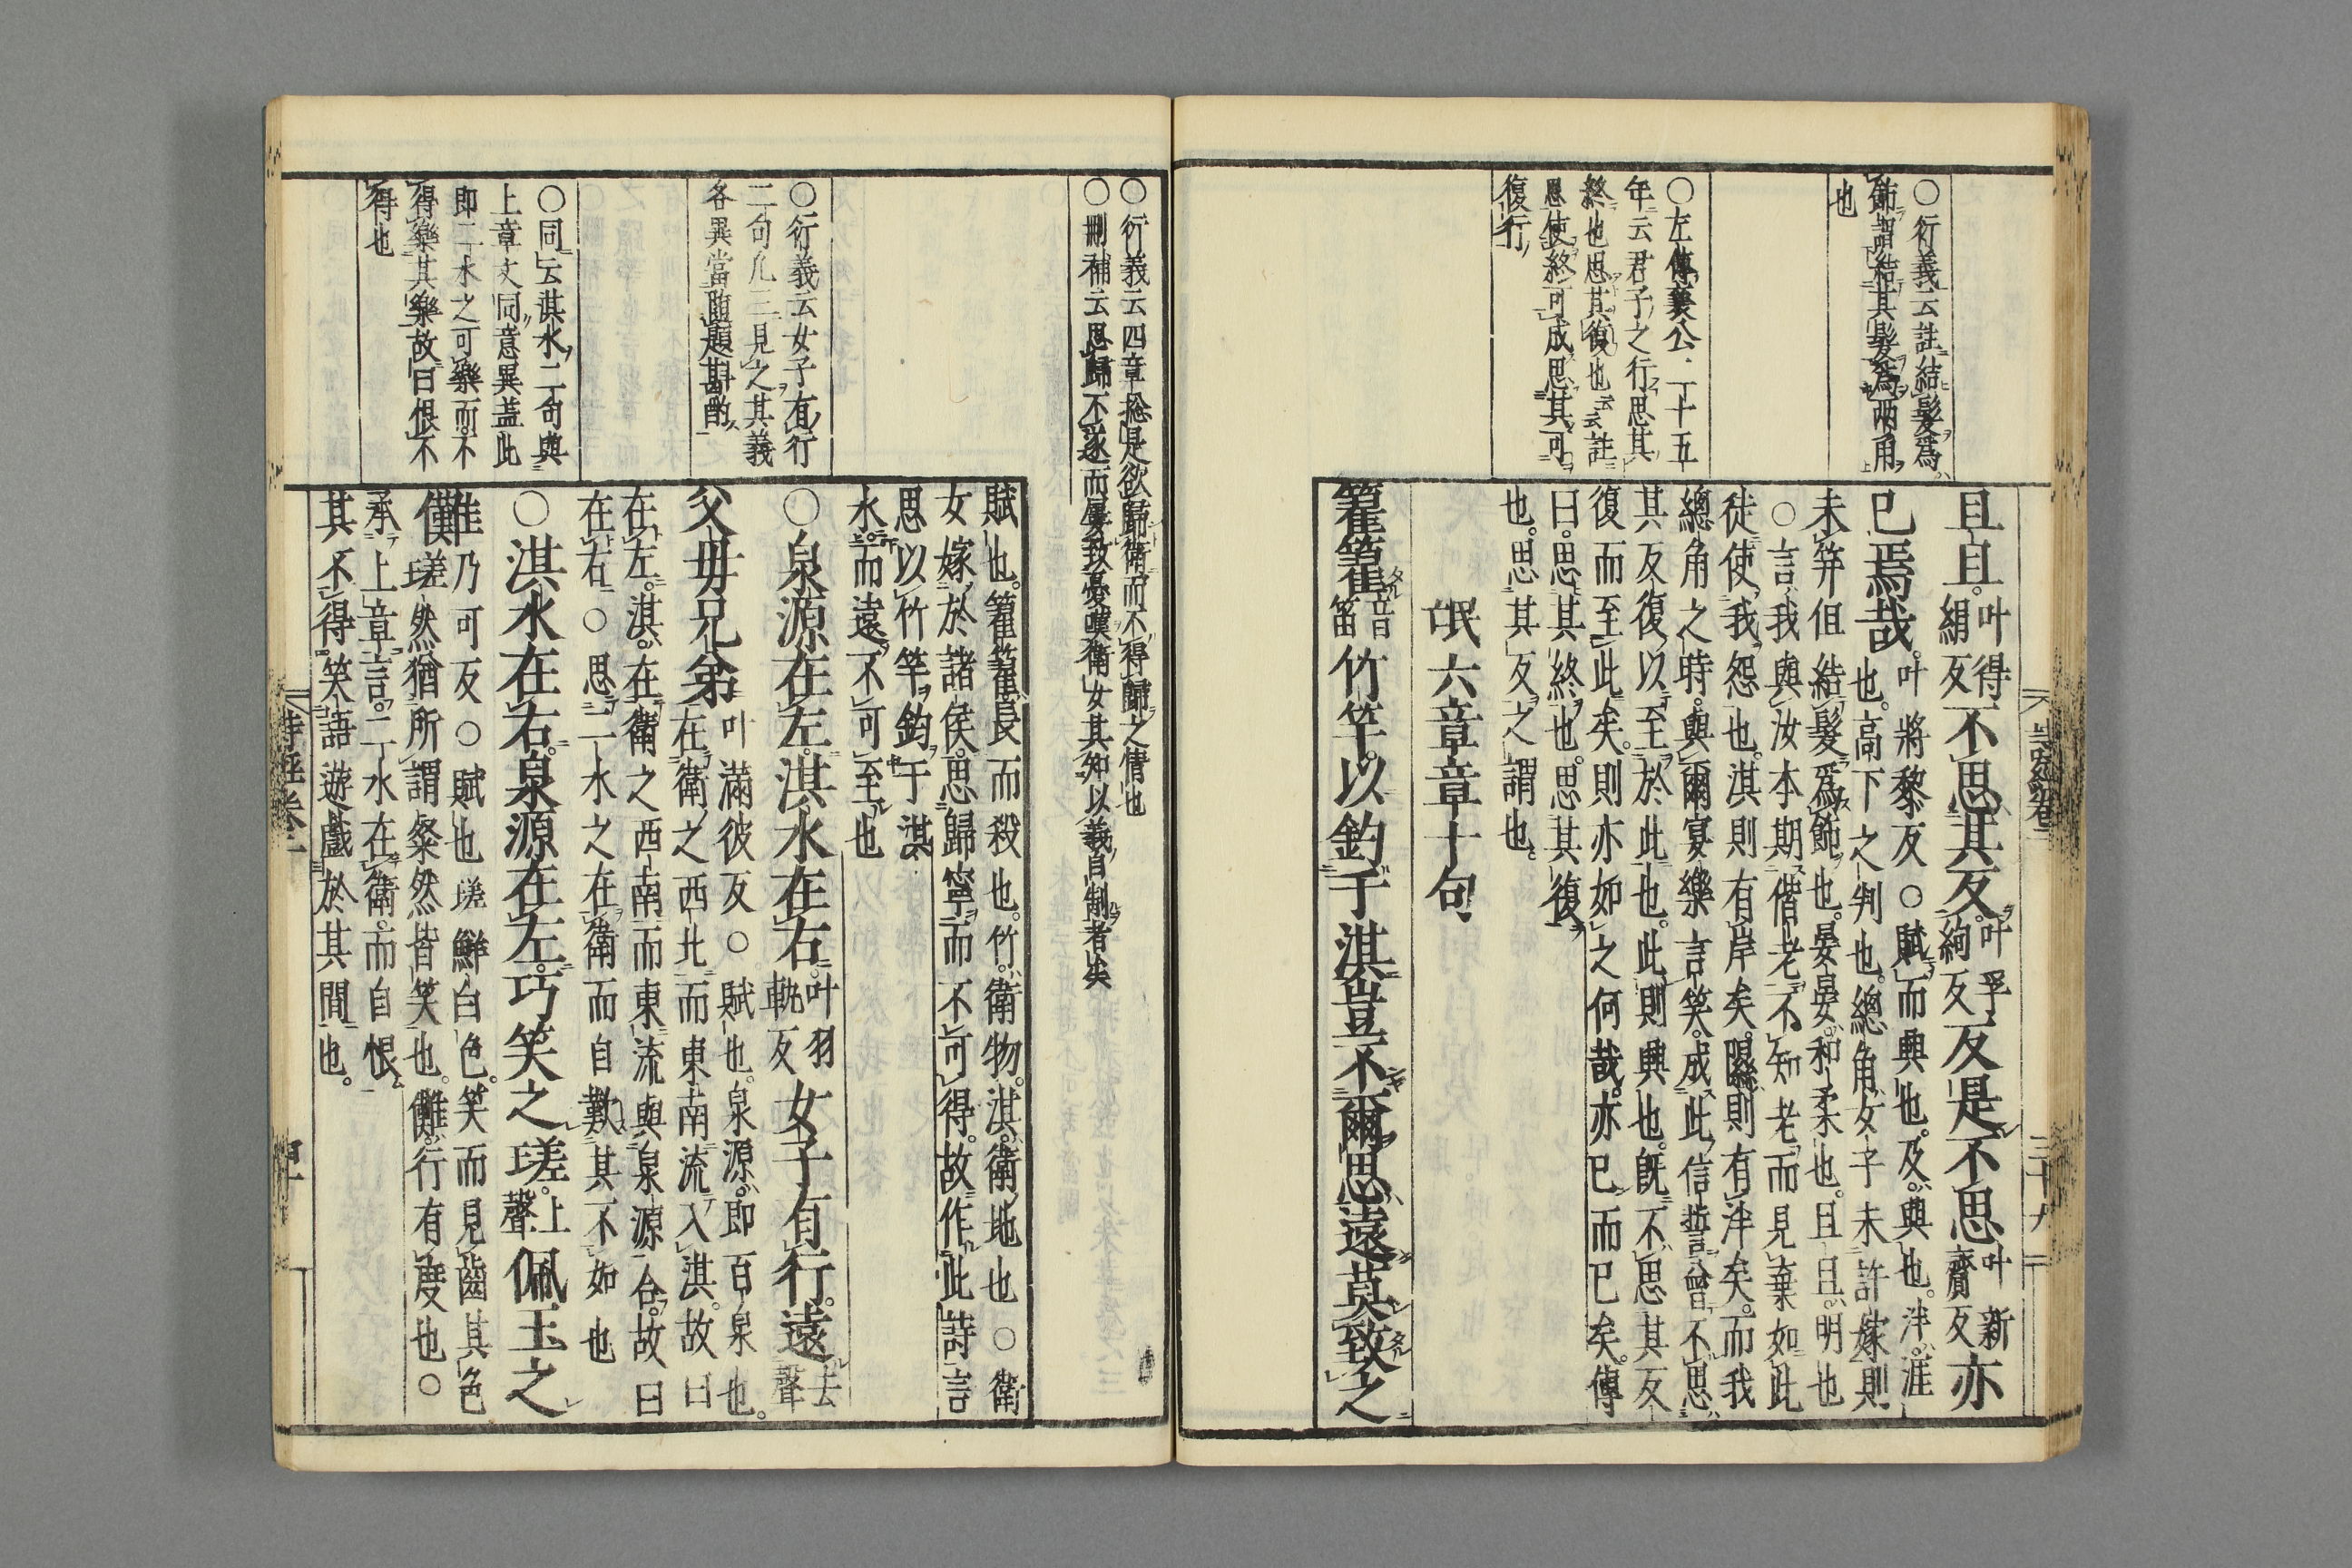 ○衍義云註結髮爲
飾謂結其髮爲兩角
也
○左傳襄公二十五
年云君子之行思其
終也思其復也云云註
思使終可成思其可
復行
且且叶得絹反不思其反叶孚絢反反是不思叶新齎反亦
已焉哉叶將黎反○賦而興也及與也泮涯
也高下之判也總角女子未許嫁則
未笄但結髮爲飾也晏晏和柔也且且明也
○言我與汝本期偕老不知老而見棄如此
徒使我怨也淇則有岸矣隰則有泮矣而我
總角之時與爾宴樂言笑成此信誓曾不思
其反復以至於此也此則興也旣不思其反
復而至此矣則亦如之何哉亦已而已矣傳
曰思其終也思其復
也思其反之謂也
氓六章章十句
籊籊音笛竹竿以釣于淇豈不爾思遠莫致之
詩經卷二
三十九
○衍義云四章總是欲歸衛而不得歸之情也
○刪補云思歸不遂而屢致憂嘆衛女其知以義自制者矣
○衍義云女子有行
二句凡三見之其義
各異當隨題斟酌
○同云淇水二句與
上章文同意異蓋此
即二水之可樂而不
得樂其樂故曰恨不
得也
賦也籊籊長而殺也竹衛物淇衛地也○衛
女嫁於諸侯思歸寧而不可得故作此詩言
思以竹竿釣于淇
水而遠不可至也
○泉源在左淇水在右叶羽軌反女子有行遠去聲
父母兄弟叶滿彼反○賦也泉源即百泉也
在衛之西北而東南流入淇故曰
在左淇在衛之西南而東流與泉源合故曰
在右○思二水之在衛而自歎其不如也
○淇水在右泉源在左巧笑之瑳上聲佩玉之
儺乃可反○賦也瑳鮮白色笑而見齒其色
瑳然猶所謂粲然皆笑也儺行有度也○
承上章言二水在衛而自恨
其不得笑語遊戲於其間也
詩經卷二
四十